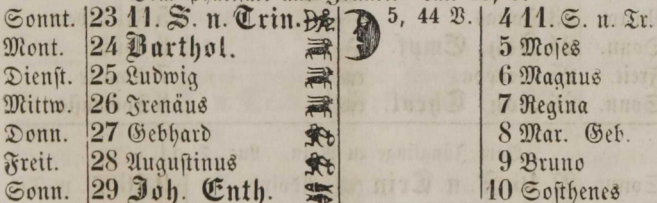 Sonnt. 23 11. S. n. Trin. 5, 44 V. 4 11. S. n. Tr.
Mont. 24 Barthol. 5 Moses
Dienst. 25 Ludwig 6 Magnus
Mittw. 26 Irenäus 7 Regina
Donn. 27 Gebhard 8 Mar. Geb.
Freit. 28 Augustinus 9 Bruno
Sonn. 29 Joh. Enth. 10 Sosthenes